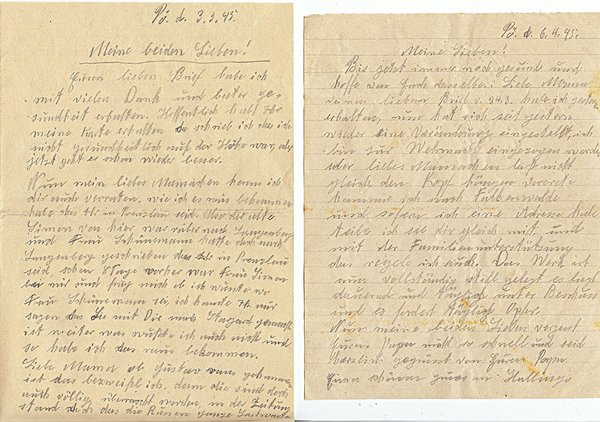 Pö. d. 3.3.45.
Meine beiden Lieben!
Euren lieben Brief habe ich
mit vielen Dank und bester Ge-
sundheit erhalten. Hoffentlich habt Ihr
meine Karte erhalten da schrieb ich das ich
nicht gesundheitlich auf der Höhe war, aber
jetzt geht es schon wieder besser.
Nun mein liebes Mamachen kann ich
dir auch verraten, wie ich es raus bekommen
habe das Ihr in Prenzlau seid. Also der alte
Simon von hier war rüber nach Langenberg
und Frau Schünemann hatte doch nach
Langenberg geschrieben das Ihr in Prenzlau
seid, schon 8 Tage vorher war Frau Simon
bei mir und frug mich ob ich wüsste wo
Frau Schünemann sei, ich konnte Ihr nur
sagen das Sie mit Dir nach Stargard gemacht
ist weiter was wusste ich auch nicht und
so habe ich das raus bekommen.
Liebe Mama ob Gustav raus gekommen
ist das bezweifle ich, denn die sind doch
auch völlig überrascht worden, in der Zeitung
stand doch das die Russen ganze
Pö. d. 6.4.45.
Meine Lieben!
Bis jetzt immer noch gesund und
hoffe von Euch dasselbe. Liebe Mama
deinen lieben Brief v. 24.3. habe ich gestern
erhalten, nun hat sich seit gestern
wieder eine Veränderung eingestellt, ich
bin zur Wehrmacht eingezogen worden
aber liebes Mamachen lass nicht
gleich den Kopf hängen vorerst
komme ich nach Falkenwalde
und sofern ich eine Adresse habe
teile ich sie dir gleich mit, und
mit der Familienunterstützung
das regele ich auch. Das Werk ist
nun vollständig still gelegt es liegt
dauernd und täglich unter Beschuss
und es fordert täglich Opfer.
Nun meine beiden Lieben vergesst
Euren Papa nicht so schnell und seid
herzlichst gegrüsst von Euren Papa